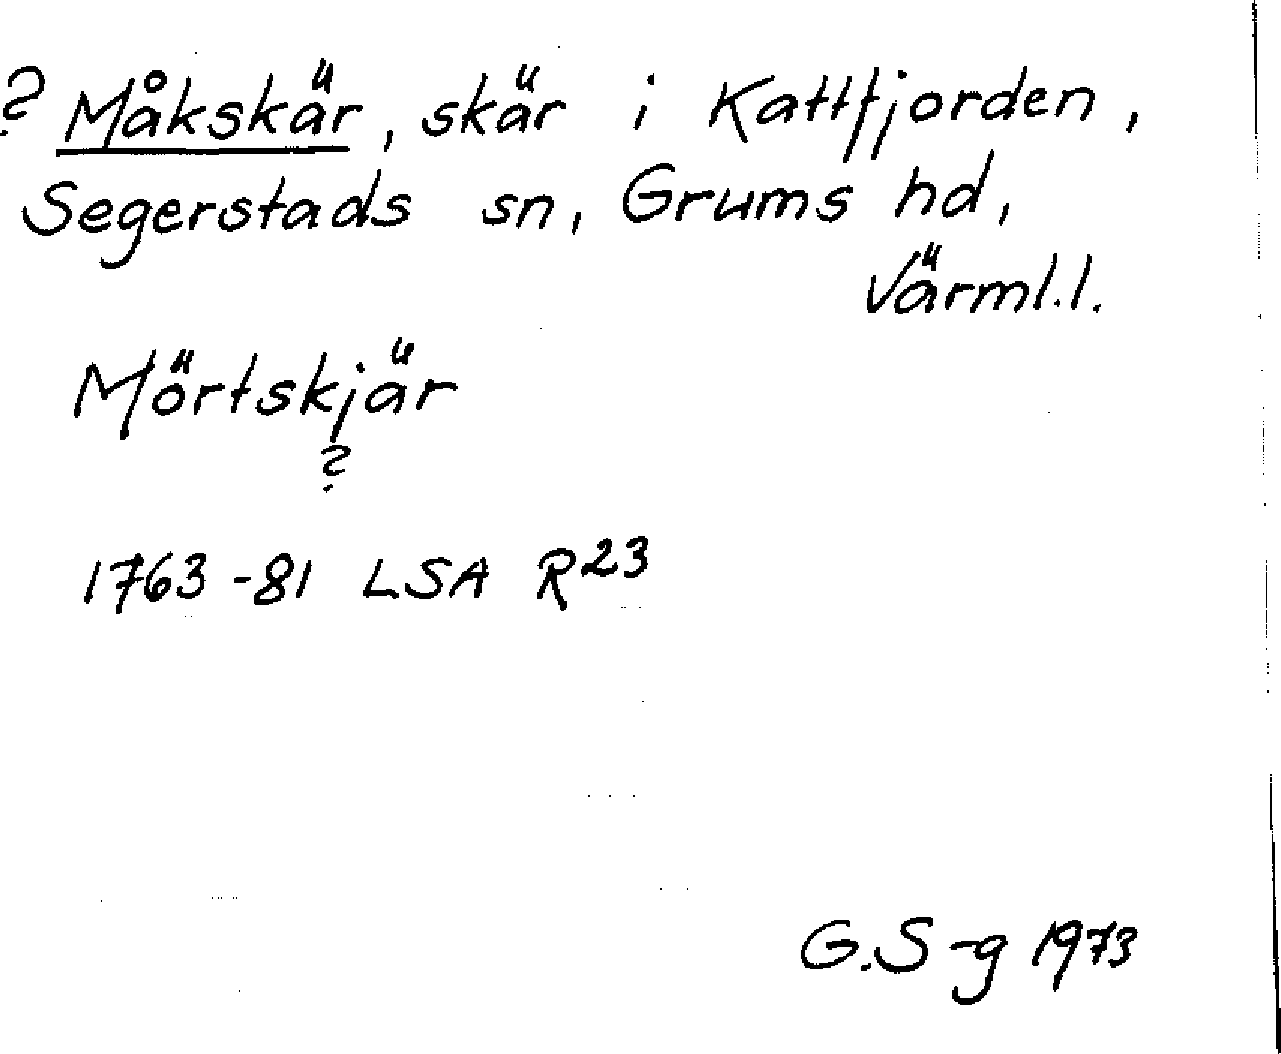 ? Måkskär, skär i Kattfjorden,
Segerstads sn, Grums hd,
Värml.l.
Mörtskjär
?
1763-81 LSA R23
G.S-g 1973